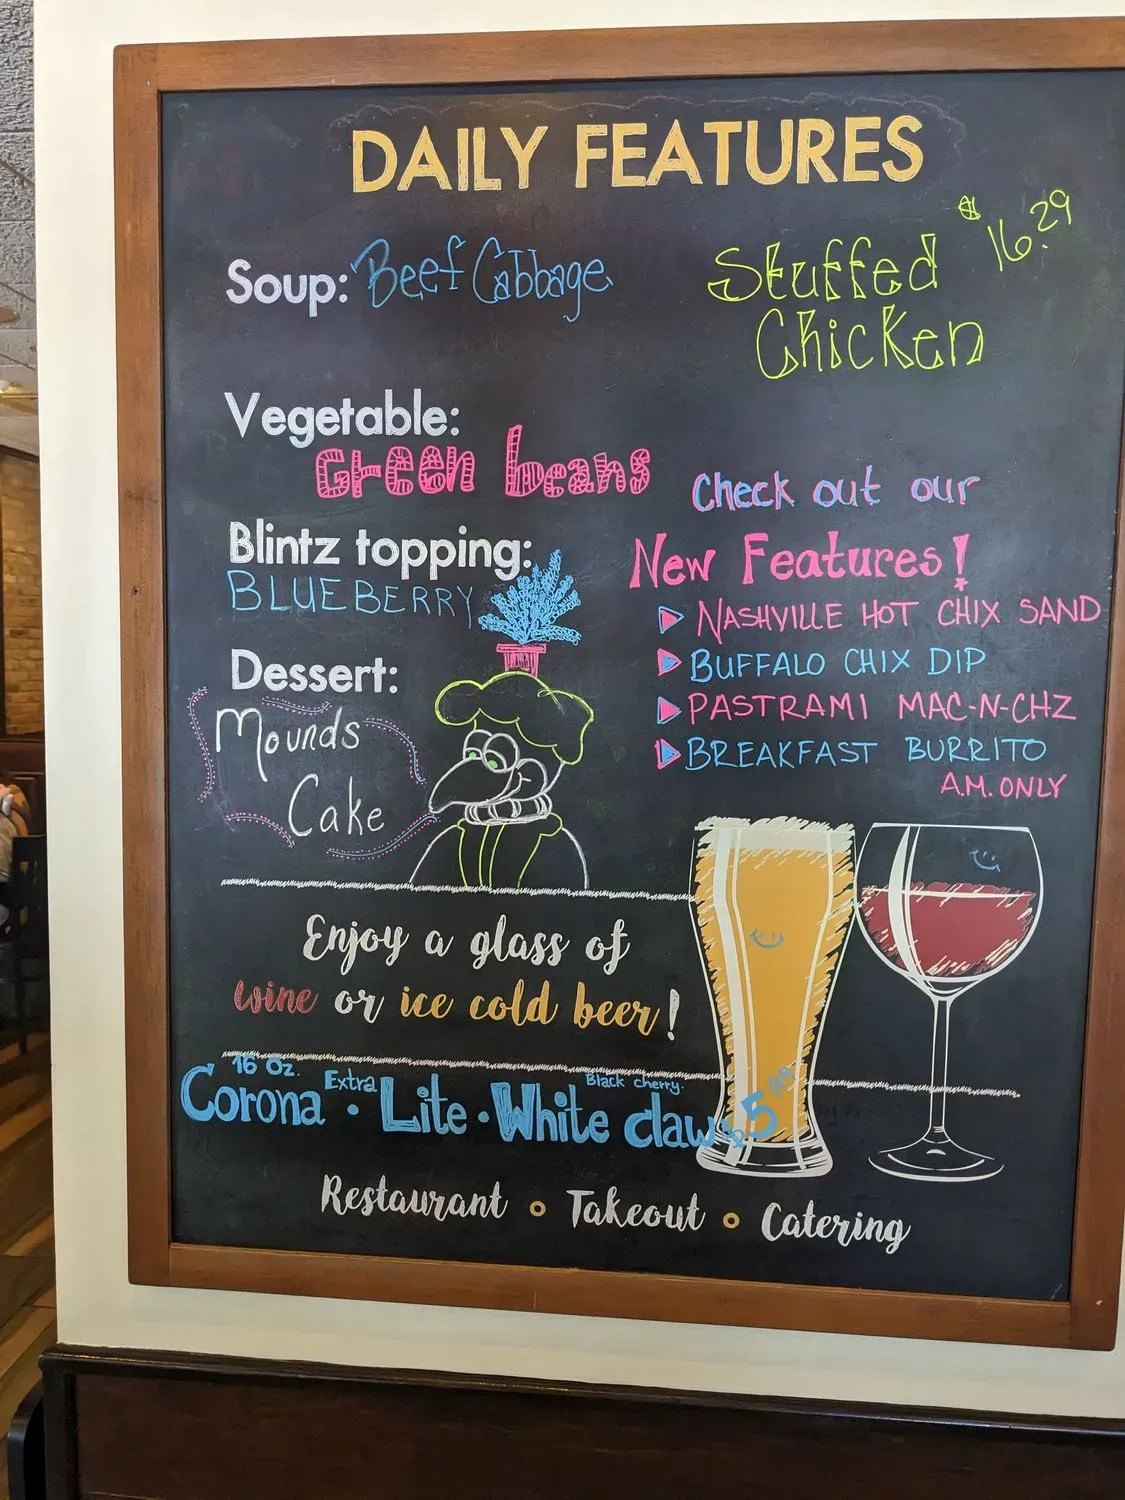 DAILY FEATURES
Soup: Beef Cabbage
Stuffed
Chicken
$16.29
Vegetable:
Green beans
Blintz topping:
BLUEBERRY
Dessert:
Mounds
Cake
Check out our
New Features!
NASHVILLE HOT CHIX SAND
BUFFALO CHIX DIP
PASTRAMI MAC-N-CHZ
BREAKFAST BURRITO
A.M. ONLY
Enjoy a glass of
wine or ice cold beer!
16 Oz.
Corona Extra • Lite • White claw
Black cherry.
Restaurant o Takeout o Catering